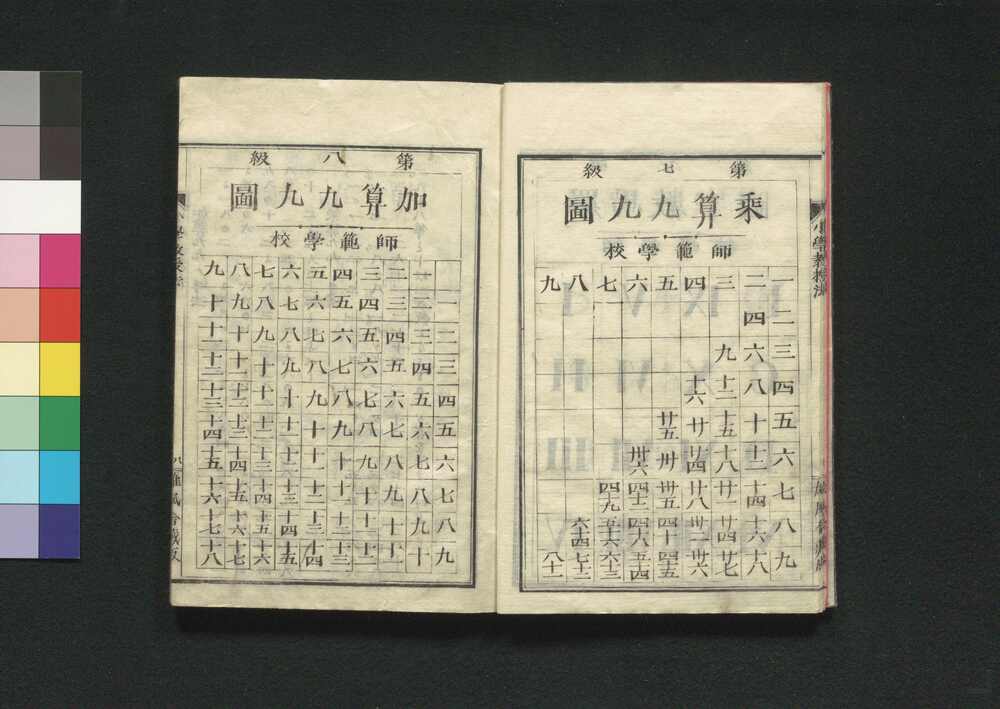 小學教授法
第七級
乘算九九圖
師範學校
一 二 三 四 五 六 七 八 九
二 四 六 八 十 十二 十四 十六 十八
三 九 十二 十五 十八 廿一 廿四 廿七
四 十六 廿 廿四 廿八 卅二 卅六
五 廿五 卅 卅五 四十 四十五
六 卅六 四十二 四十八 五十四
七 四十九 五十六 六十三
八 六十四 七十二
九 八十一
第八級
加算九九圖
師範學校
一 二 三 四 五 六 七 八 九
一 二 三 四 五 六 七 八 九 十
二 三 四 五 六 七 八 九 十 十一
三 四 五 六 七 八 九 十 十一 十二
四 五 六 七 八 九 十 十一 十二 十三
五 六 七 八 九 十 十一 十二 十三 十四
六 七 八 九 十 十一 十二 十三 十四 十五
七 八 九 十 十一 十二 十三 十四 十五 十六
八 九 十 十一 十二 十三 十四 十五 十六 十七
九 十 十一 十二 十三 十四 十五 十六 十七 十八